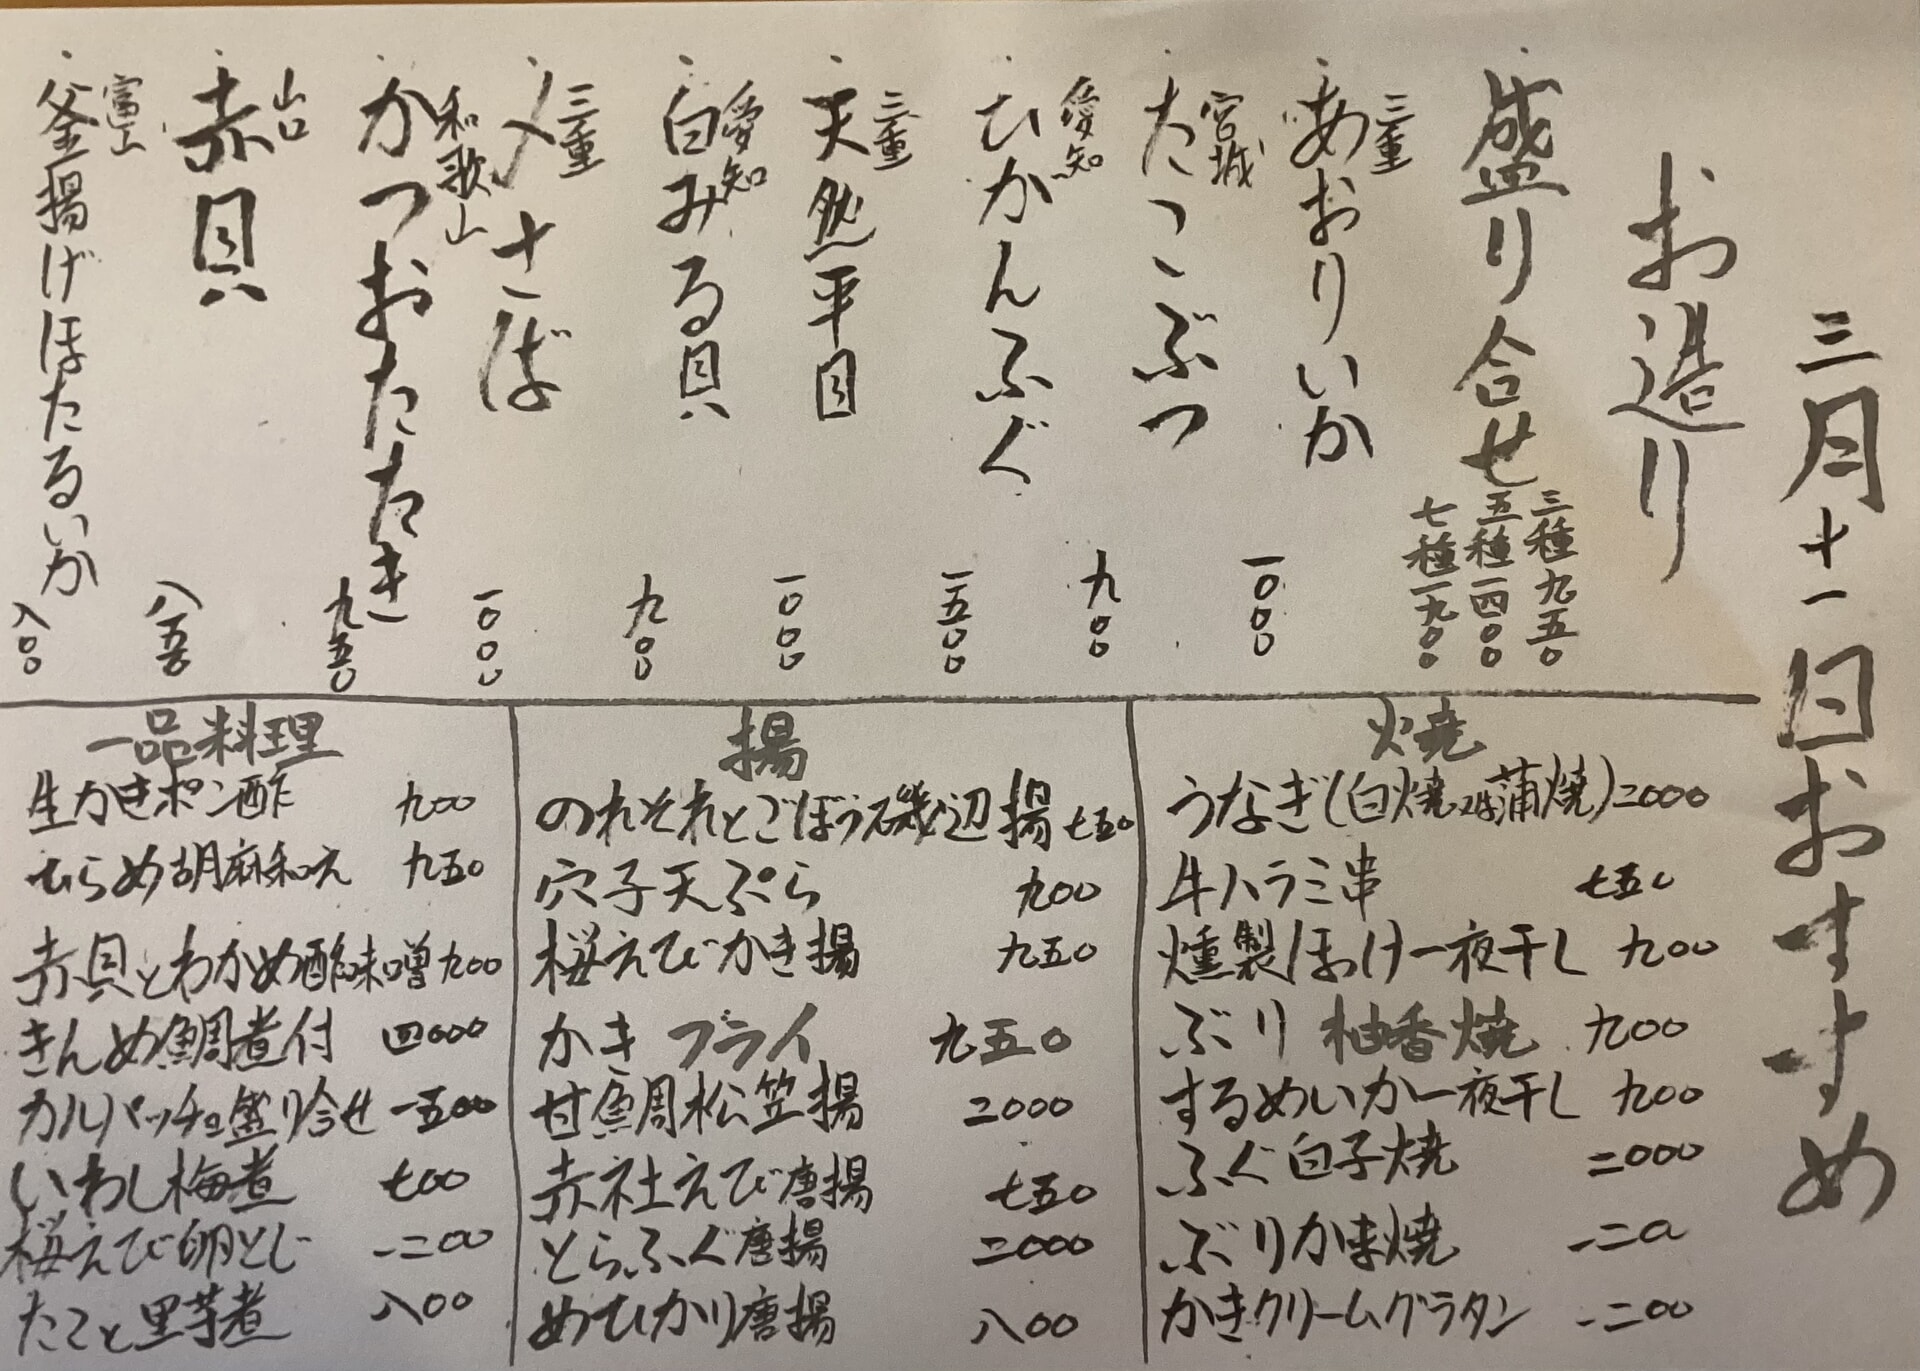 三月十一日おすすめ
お造り
盛り合せ
三種 九五〇
五種 一四〇〇
七種 一九〇〇
三重
あおりいか 一〇〇〇
宮城
たこぶつ 九〇〇
愛知
ひかんふぐ 一五〇〇
三重
天然平目 一〇〇〇
愛知
白みる貝 九〇〇
三重
〆さば 一〇〇〇
和歌山
かつおたたき 九五〇
山口
赤貝 八五〇
富山
釜揚げほたるいか 八〇〇
焼
うなぎ(白焼又は蒲焼)二〇〇〇
牛ハラミ串 七五〇
燻製ほっけ一夜干し 九〇〇
ぶり 柚香焼 九〇〇
するめいか一夜干し 九〇〇
ふぐ白子焼 二〇〇〇
ぶりかま焼 一二〇〇
かきクリームグラタン 一二〇〇
揚
のれそれとごぼう磯辺揚 七五〇
穴子天ぷら 九〇〇
桜えびかき揚 九五〇
かき フライ 九五〇
甘鯛松笠揚 二〇〇〇
赤社えび唐揚 七五〇
とらふぐ唐揚 二〇〇〇
めひかり唐揚 八〇〇
一品料理
生かきポン酢 九〇〇
ひらめ胡麻和え 九五〇
赤貝とわかめ酢味噌 九〇〇
きんめ鯛煮付 四〇〇〇
カルパッチョ盛り合せ 一五〇〇
いわし梅煮 七〇〇
桜えび卵とじ 一二〇〇
たこと里芋煮 八〇〇